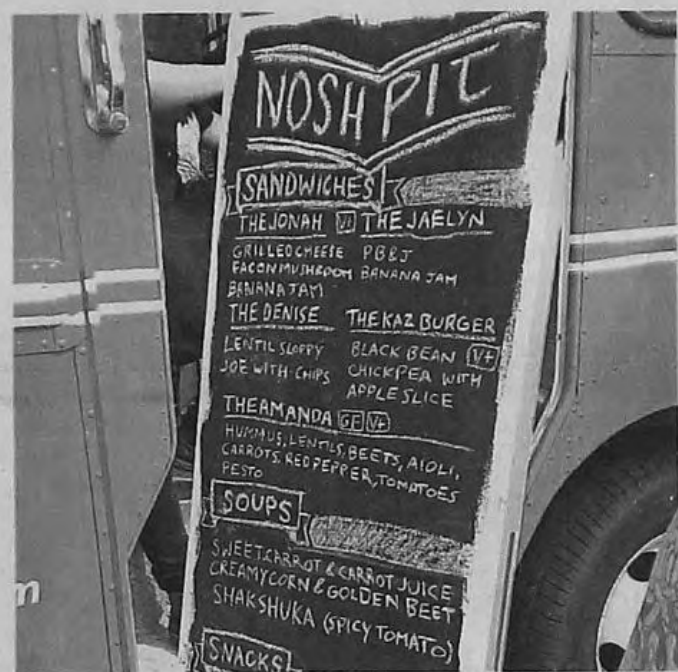 NOSH PIT
SANDWICHES
THE JONAH V THE JAELYN
GRILLED CHEESE
FACON MUSHROOM
BANANA JAM
PB&J
BANANA JAM
THE DENISE
LENTIL SLOPPY
JOE WITH CHIPS
THE KAZ BURGER
BLACK BEAN V+
CHICKPEA WITH
APPLE SLICE
THE AMANDA GF V+
HUMMUS, LENTILS, BEETS, AIOLI,
CARROTS, RED PEPPER, TOMATOES
PESTO
SOUPS
SWEET CARROT & CARROT JUICE
CREAMY CORN & GOLDEN BEET
SHAKSHUKA (SPICY TOMATO)
SNACKS
m